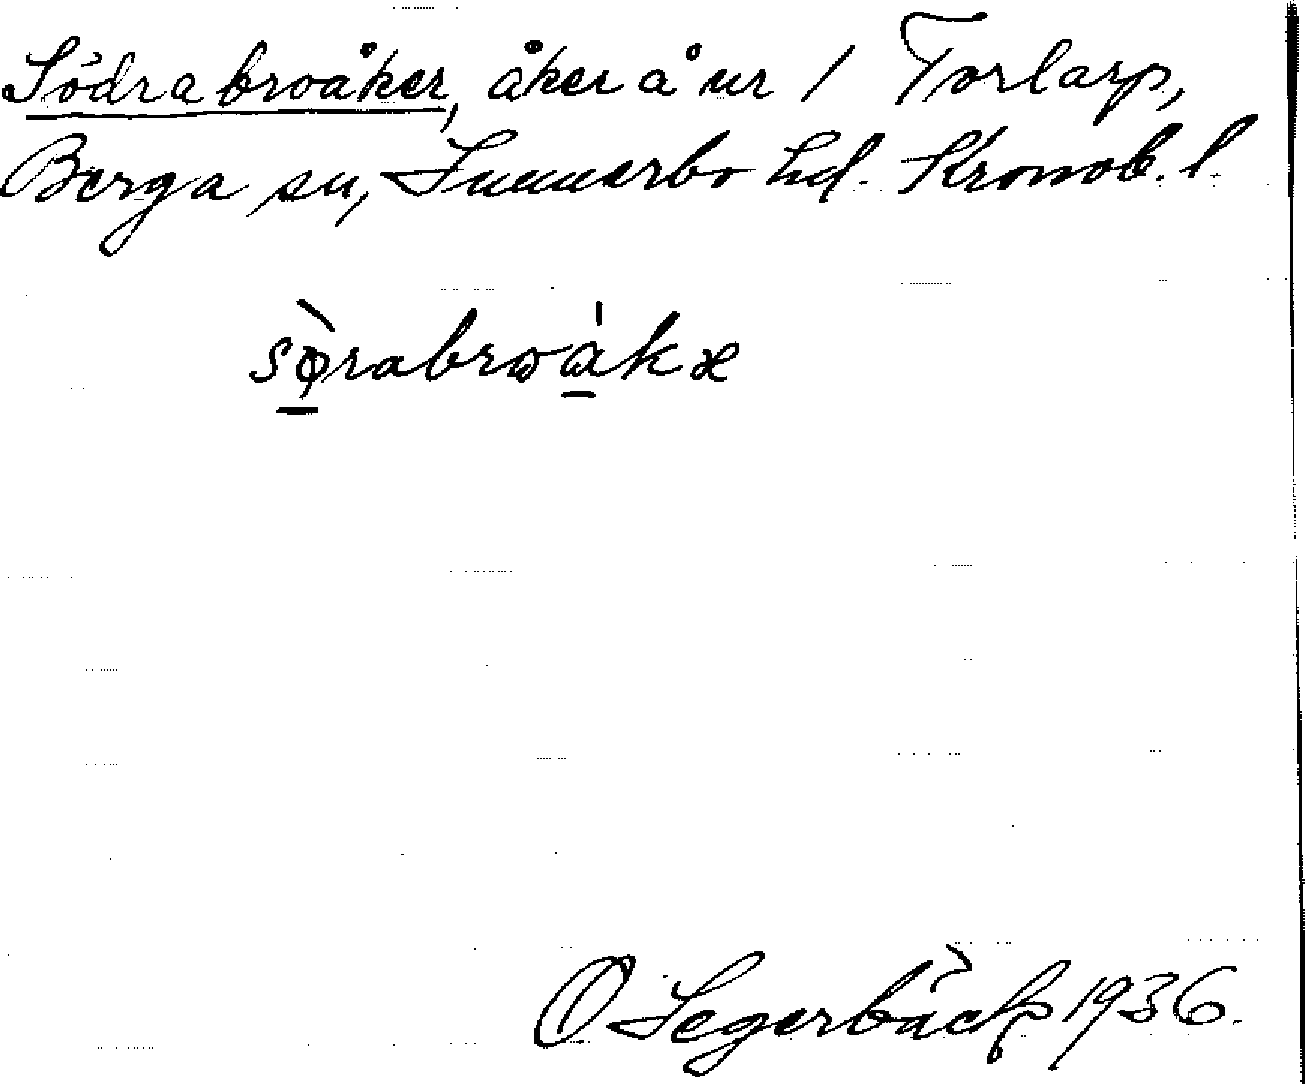 Södrabroåker, åker å nr 1 Torlarp,
Berga sn, Sunnerbo hd. Kronob. l.
sø̀rabrωάkæ
O Segerbäck 1936.